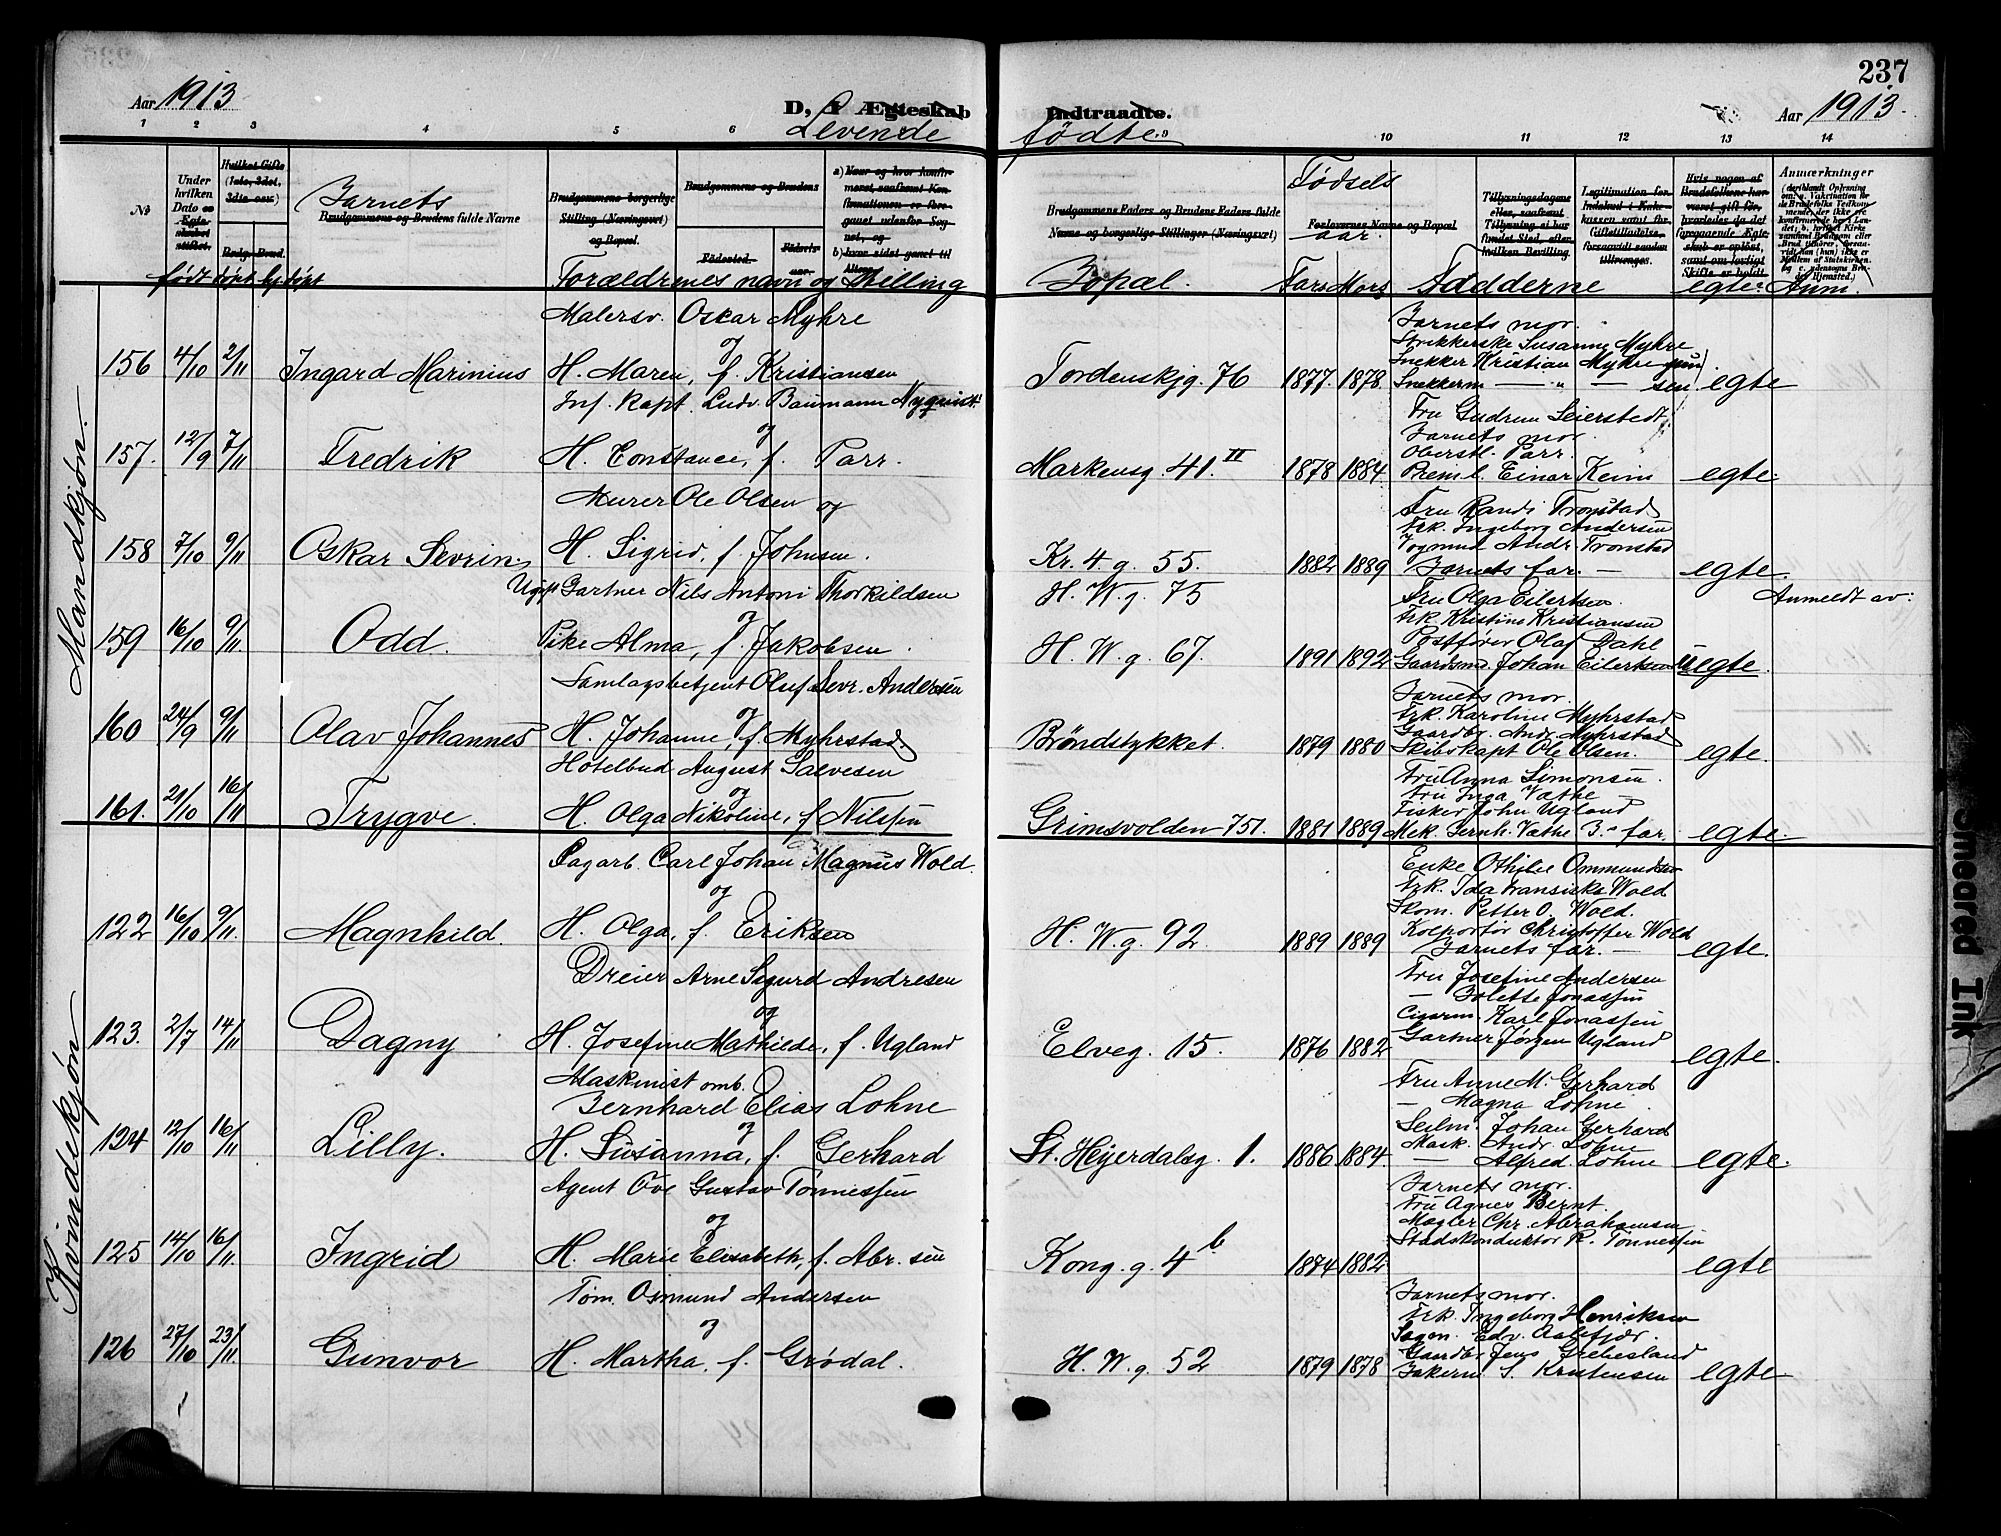 237
Aar 1913
D, I Ægteskab Indtraadte.
Levende fødte.
Aar 1913.
1 2 3 4 5 6 9 10 11 12 13 14
№
Under hvilken Dato er Ægteskabet stiftet.
Hvilket Gifte (1ste, 2det, 3die osv.)
Brudg. Brud.
Barnets
Brudgommens og Brudens fulde Navne
Brudgommens borgerlige Stilling (Næringsvei) og Bopæl.
Brudgommens og Brudens
Fødested.
Fødselsaar.
Brudgommens Faders og Brudens Faders fulde Navne og borgerlige Stillinger (Næringsvei)
Fødsels
Forlovernes Navne og Bopæl
aar.
Anmærkninger
født døbt hj.døbt
Forældrenes navn og stilling
Bopæl.
Fars Mors
Fadderne
egte?
Anm.
Mandkjøn.
Malersv. Oskar Myhre
og
156 4/10 2/11 Ingard Marinius H. Maren, f. Kristiansen Tordenskjg. 76 1877 1878 egte
Barnets mor.
Strikkerske Susanne Myhre
Snekker Kristian Myhre jun
Snekkerm — „ — sen.
Inf. kapt. Ludv. Baumann Nyquist
og
157. 12/9 7/11 Fredrik H. Constance, f. Parr. Markensg 41 III 1878 1884 egte.
Fru Gudrun Seierstedt
Barnets mor.
Oberstl. Parr.
Preml. Einar Keim
Murer Ole Olsen og
158 7/10 9/11 Oskar Sevrin H. Sigrid, f. Johnsen. Kr. 4 g. 55. 1882 1889 egte.
Fru Randi Tronstad
Frk. Ingeborg Andersen
Vognmd Andr. Tronstad
Barnets far. —
Ugift Gartner Nils Antoni Thorkildsen H. W. g. 75 Anmeldt av:
og
159 16/10 9/11 Odd. Pike Alma, f. Jakobsen. H. W. g. 67. 1891 1892 uegte.
Fru Olga Eilertsen
Frk Kristine Kristiansen
Postfører Olaf Dahl
Gaardsm. Johan Eilertsen
Samlagsbetjent Oluf Sevr. Andersen
og
160 24/9 9/11 Olav Johannes H. Johanne, f. Myhrstad. Brøndstykket. 1879 1880 egte.
Barnets mor
Frk. Karoline Myhrstad
Gaardbr. Andr. Myhrstad
Skibskapt Ole Olsen.
Hotelbud August Salvesen
og
161. 21/10 16/11 Trygve. H. Olga Nikoline, f. Nilssen Grimsvolden 751. 1881 1889 egte.
Fru Anna Simonsen.
Fru Inga Vathe
Fisker John Ugland
Mek. Bernh. Vathe B.s far.
Kvindekjøn
Sagarb. Carl Johan Magnus Wold.
og
122 16/10 9/11. Magnhild. H. Olga, f. Eriksen H. W. g. 92. 1889 1889 egte.
Enke Othilie Ommundsen
Frk. Ida Fransiska Wold
Skom. Petter O. Wold.
Kolportør Christoffer Wold
Barnets far. —
Dreier Arne Sigurd Andresen
og
123. 2/7 14/11 Dagny H. Josefine Mathilde, f. Ugland Elveg. 15. 1876 1882 egte.
Fru Josefine Andersen
— Bolette Jonassen
Cigarm. Karl Jonassen
Gartner Jørgen Ugland
Maskinist omb.
Bernhard Elias Lohne
og
124 12/10 16/11 Lilly. H. Susanna, f. Gerhard St. Heyerdalsg. 1. 1886 1884. egte.
Fru Anne M. Gerhard
— Magna Lohne
Seilm. Johan Gerhard
Mask. Andr. Lohne
— Alfred Lohne
Agent Ove Gustav Tønnessen
og
125 14/10 16/11. Ingrid H. Marie Elisabeth, f. Abr.sen Kong. g. 4 b 1874 1882 egte
Barnets mor.
Fru Agnes Bernt.
Mægler Chr. Abrahamsen
Stadskonduktør R. Tønnessen
Tøm. Osmund Andersen
og
126 27/10 23/11. Gunvor H. Martha, f. Grødal. H. W. g. 52 1879 1878 egte
Barnets mor.
Frk. Ingeborg Henriksen
Sagm. Edv. Aabefjær.
Gaardbr. Jens Grebesland
Bakerm S. Kristensen
Smeared Ink